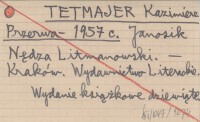 TETMAJER Kazimierz
Przerwa - 1957 c. Janosik
Nędza Litmanowski. —
Kraków. Wydawnictwo Literackie.
Wydanie książkowe dziewiąte